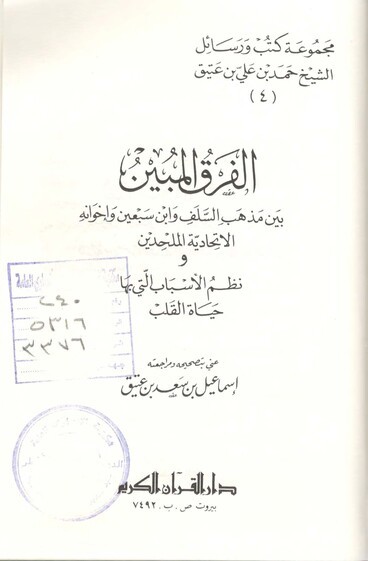 مجموعة كتب ورسائل
الشيخ حمد بن علي بن عتيق
(٤)
الفرق المبين
بين مذهب السلف وابن سبعين وإخوانه
الاتحادية الملحدين
و
نظم الأسباب التي بها
حياة القلب
العامة
٢٤٠
٥٣١٦
٣٣٧٦
عني بتصحيحه ومراجعته
إسماعيل بن سعد بن عتيق
دار القرآن الكريم
بيروت ص. ب. ٧٤٩٢